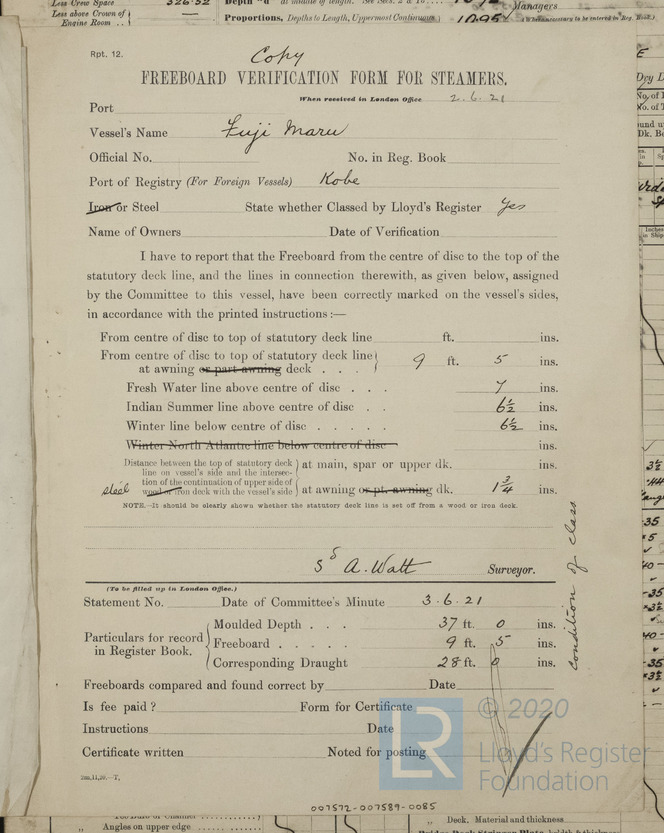 Less Crew Space 326.52
Less above Crown of
Engine Room
Depth "d" at middle of length.
Proportions, Depths to Length, Uppermost Continuous
Managers
Rpt. 12.
Copy
FREEBOARD VERIFICATION FORM FOR STEAMERS.
When received in London Office 2.6.21
Port
Vessel's Name Fuji Maru
Official No. No. in Reg. Book
Port of Registry (For Foreign Vessels) Kobe
Iron or Steel State whether Classed by Lloyd's Register Yes
Name of Owners Date of Verification
I have to report that the Freeboard from the centre of disc to the top of the
statutory deck line, and the lines in connection therewith, as given below, assigned
by the Committee to this vessel, have been correctly marked on the vessel's sides,
in accordance with the printed instructions :—
From centre of disc to top of statutory deck line ft. ins.
From centre of disc to top of statutory deck line
at awning or part awning deck . . . 9 ft. 5 ins.
Fresh Water line above centre of disc . . . 7 ins.
Indian Summer line above centre of disc . . 6½ ins.
Winter line below centre of disc . . . . . 6½ ins.
Winter North Atlantic line below centre of disc ins.
Distance between the top of statutory deck
line on vessel's side and the intersec-
tion of the continuation of upper side of
steel wood or iron deck with the vessel's side
at main, spar or upper dk. ins.
at awning or pt. awning dk. 1¾ ins.
NOTE.—It should be clearly shown whether the statutory deck line is set off from a wood or iron deck.
condition of class
Sd A. Watt Surveyor.
(To be filled up in London Office.)
Statement No. Date of Committee's Minute 3.6.21
Particulars for record
in Register Book.
Moulded Depth . . . 37 ft. 0 ins.
Freeboard . . . . . 9 ft. 5 ins.
Corresponding Draught 28 ft. 0 ins.
Freeboards compared and found correct by Date
Is fee paid ? Form for Certificate
Instructions Date
Certificate written Noted for posting
2m,11,20.–T,
© 2020
LR
Lloyd's Register
Foundation
007572-007589-0085
Angles on upper edge
Deck. Material and thickness